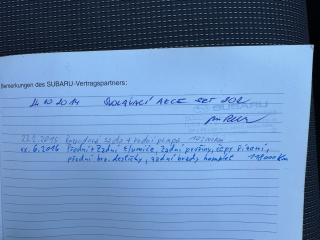 Bemerkungen des SUBARU-Vertragspartners:
24.10 2014 SVOLÁVACÍ AKCE
SUBARU
2016 rozvodová sada + vodní pumpa
6.2016 Přední + Zadní tlumiče, Zadní pružiny, čepy řízení,
přední brz. destičky, zadní brzdy komplet 198000 Km